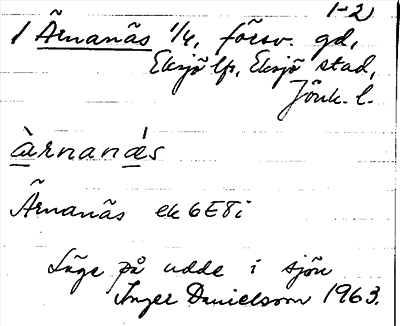 1-2
1 Ärnanäs 1/4, försv. gd,
Eksjö lfs, Eksjö stad,
Jönk. l.
àrnanás
Ärnanäs ek 6E8i
Läge på udde i sjön
Inger Danielsson 1963.